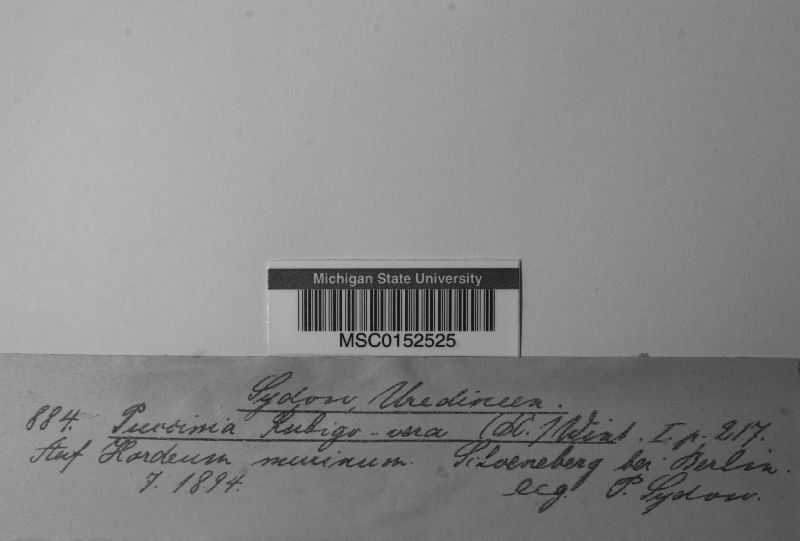 Michigan State University
MSC0152525
Sydow, Uredineen.
884. Puccinia Rubigo-vera (DC.) Wint. I. p. 217.
Auf Hordeum murinum. Schoeneberg bei Berlin.
7. 1894. leg. P. Sydow.